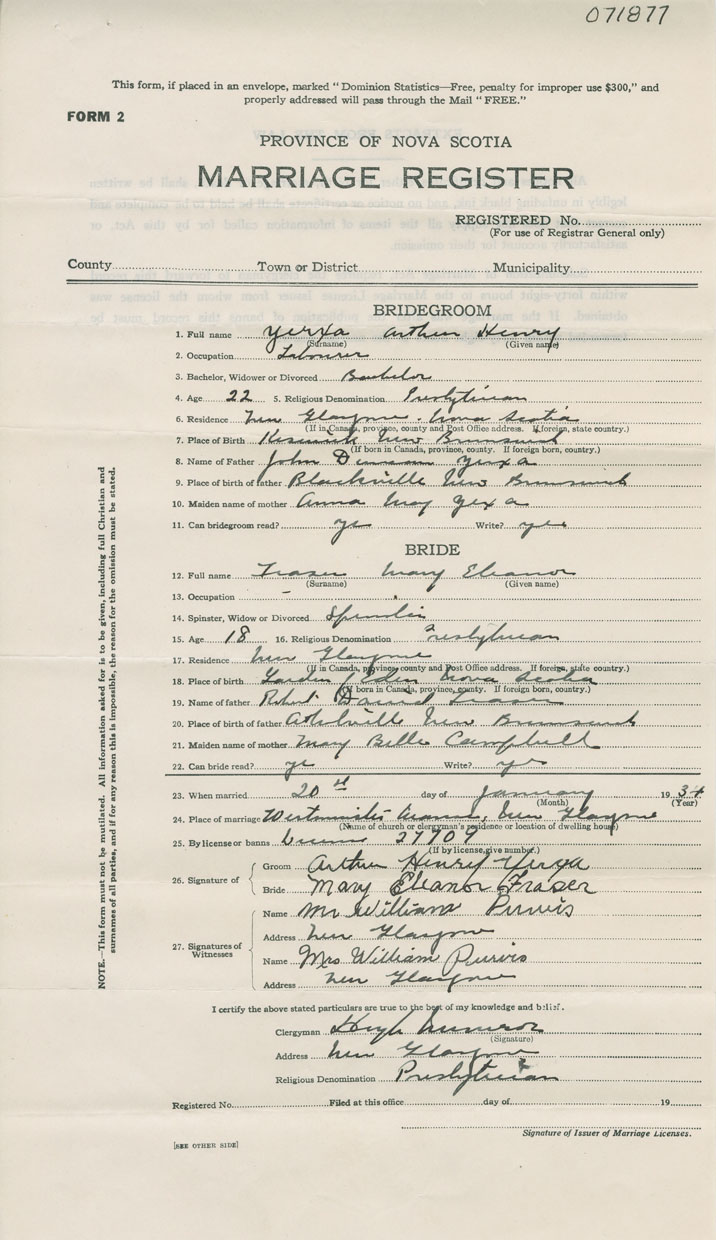 071877
This form, if placed in an envelope, marked "Dominion Statistics—Free, penalty for improper use $300," and
properly addressed will pass through the Mail "FREE."
FORM 2
PROVINCE OF NOVA SCOTIA
MARRIAGE REGISTER
REGISTERED No.
(For use of Registrar General only)
County Town or District Municipality
BRIDEGROOM
1. Full name Yerxa Arthur Henry
(Surname) (Given name)
2. Occupation Labourer
3. Bachelor, Widower or Divorced Bachelor
4. Age 22 5. Religious Denomination Presbyterian
6. Residence New Glasgow. Nova Scotia
(If in Canada, province, county and Post Office address. If foreign, state country.)
7. Place of Birth Keswick New Brunswick
(If born in Canada, province, county. If foreign born, country.)
8. Name of Father John Yerxa
9. Place of birth of father Blackville New Brunswick
10. Maiden name of mother Anna May Yexa
11. Can bridegroom read? yes Write? yes
BRIDE
12. Full name Fraser Mary Eleanor
(Surname) (Given name)
13. Occupation –
14. Spinster, Widow or Divorced Spinster
15. Age 18 16. Religious Denomination Presbyterian
17. Residence New Glasgow
(If in Canada, province, county and Post Office address. If foreign, state country.)
18. Place of birth Garden of Eden Nova Scotia
(If born in Canada, province, county. If foreign born, country.)
19. Name of father Robert Fraser
20. Place of birth of father New Brunswick
21. Maiden name of mother Mary Belle Campbell
22. Can bride read? yes Write? yes
23. When married 20 day of January 1934
(Month) (Year)
24. Place of marriage New Glasgow
(Name of church or clergyman's residence or location of dwelling house)
25. By license or banns License 27909
(If by license, give number.)
26. Signature of
Groom Arthur Henry Yerxa
Bride Mary Eleanor Fraser
27. Signatures of
Witnesses
Name Mr William Purvis
Address New Glasgow
Name Mrs William Purvis
Address New Glasgow
I certify the above stated particulars are true to the best of my knowledge and belief.
Clergyman Hugh Munroe
(Signature)
Address New Glasgow
Religious Denomination Presbyterian
Registered No. Filed at this office day of 19
Signature of Issuer of Marriage Licenses.
[SEE OTHER SIDE]
NOTE.—This form must not be mutilated. All information asked for is to be given, including full Christian and
surnames of all parties, and if for any reason this is impossible, the reason for the omission must be stated.